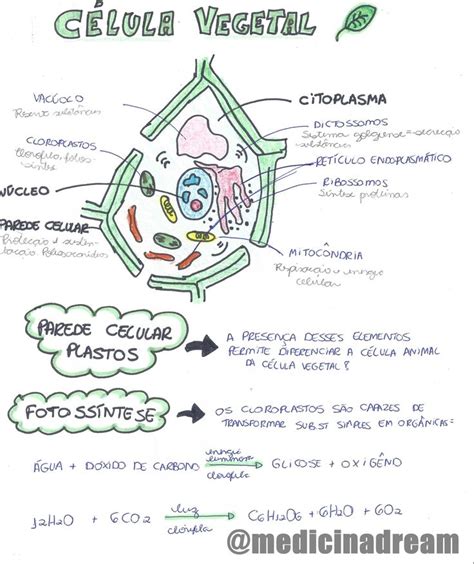 CÉLULA VEGETAL
VACÚOLO
Reserva substâncias
CLOROPLASTOS
Clorofila, fotos-
síntese
NÚCLEO
PAREDE CELULAR
Proteção e susten-
tação
CITOPLASMA
DICTOSSOMOS
Sistema golgiense = secreção
substâncias
RETÍCULO ENDOPLASMÁTICO
RIBOSSOMOS
Síntese proteínas
MITOCÔNDRIA
Respiração = energia
celular
PAREDE CELULAR
PLASTOS
A PRESENÇA DESSES ELEMENTOS
PERMITE DIFERENCIAR A CÉLULA ANIMAL
DA CÉLULA VEGETAL
FOTOSSÍNTESE
OS CLOROPLASTOS SÃO CAPAZES DE
TRANSFORMAR SUBST SIMPLES EM ORGÂNICAS=
ÁGUA + DIÓXIDO DE CARBONO energia luminosa clorofila GLICOSE + OXIGÊNO
12H2O + 6CO2 luz clorofila C6H12O6 + 6H2O + 6O2
@medicinadream